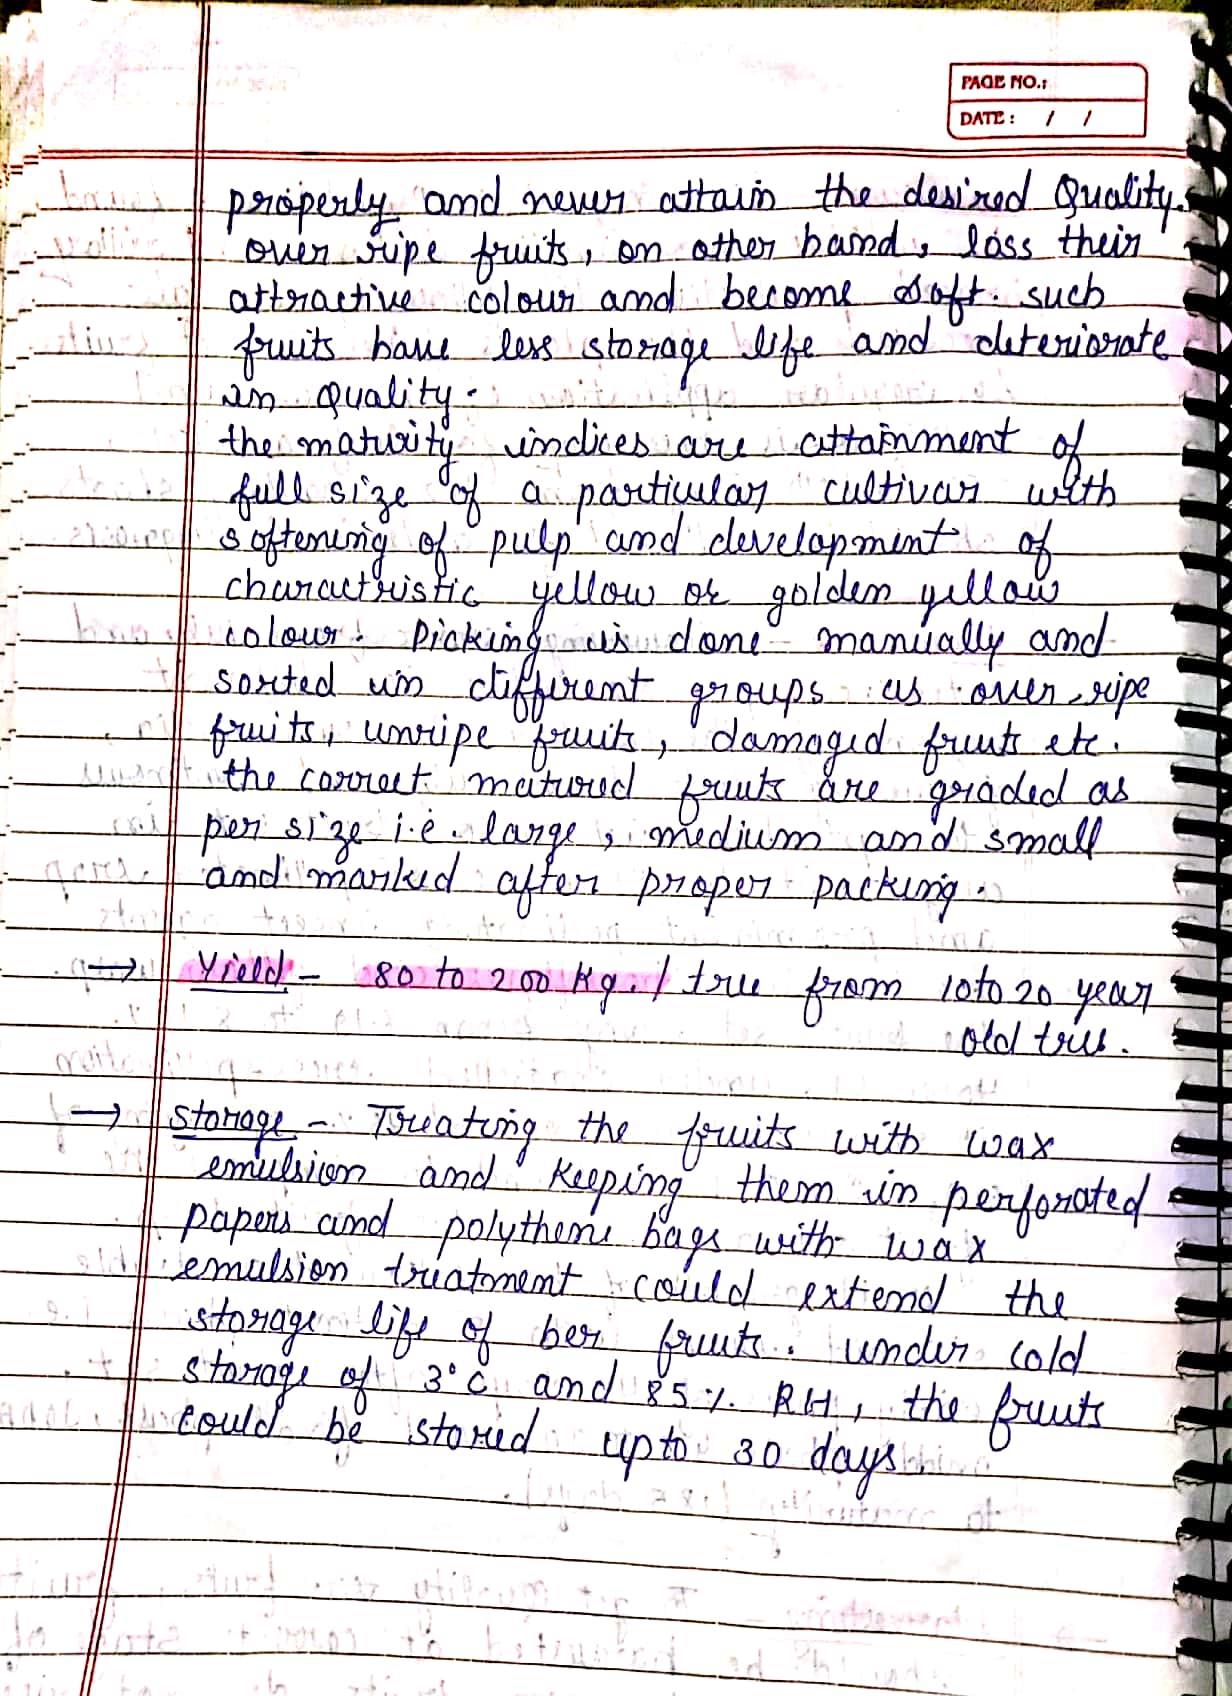 PAGE NO.:
DATE: / /
properly and never attain the desired Quality.
over ripe fruits, on other hand, loss their
attractive colour and become soft. such
fruits have less storage life and deteriorate
in Quality.
the maturity indices are attainment of
full size of a particular cultivar with
softening of pulp and development of
charactristic yellow or golden yellow
colour. Picking is done manually and
sorted in different groups as over ripe
fruits, unripe fruits, damaged fruits etc.
the correct matured fruits are graded as
per size i.e. large, medium and small
and marked after proper packing.
→ Yield - 80 to 200 Kg. / tree from 10 to 20 year
old tree.
→ Storage - Treating the fruits with wax
emulsion and Keeping them in perforated
papers and polythene bags with wax
emulsion treatment could extend the
storage life of ber fruits. under cold
storage of 3°C and 85 %. RH, the fruits
could be stored upto 30 days.